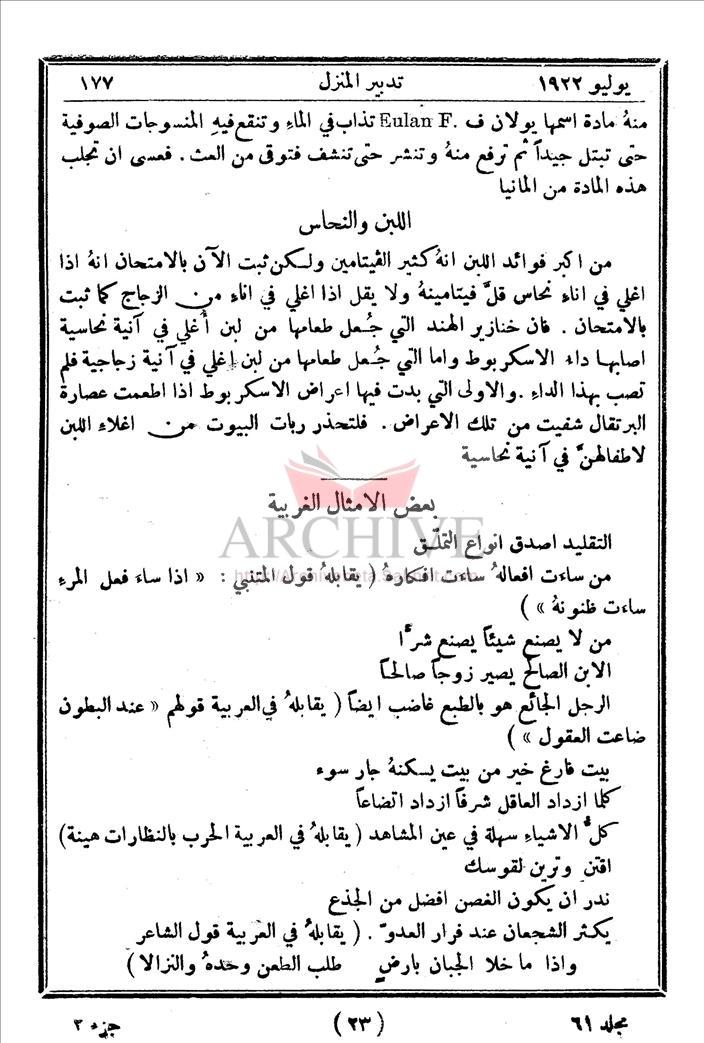 يوليو ١٩٢٢ تدبير المنزل ١٧٧
منهُ مادة اسمها يولان ف .Eulan F تذاب في الماءِ وتنقع فيهِ المنسوجات الصوفية
حتى تبتل جيداً ثم ترفع منهُ وتنشر حتى تنشف فتوقى من العث . فعسى ان تجلب
هذه المادة من المانيا
اللبن والنحاس
من اكبر فوائد اللبن انهُ كثير الڤيتامين ولكن ثبت الآن بالامتحان انهُ اذا
اغلي في اناءِ نحاس قلَّ فيتامينهُ ولا يقل اذا اغلي في اناءِ من الزجاج كما ثبت
بالامتحان . فان خنازير الهند التي جُعل طعامها من لبن أُغلي في آنية نحاسية
اصابها داء الاسكربوط واما التي جُعل طعامها من لبن اغلي في آنية زجاجية فلم
تصب بهذا الداءِ . والاولى التي بدت فيها اعراض الاسكربوط اذا اطعمت عصارة
البرتقال شفيت من تلك الاعراض . فلتحذر ربات البيوت من اغلاء اللبن
لاطفالهنَّ في آنية نحاسية
بعض الامثال الغربية
ARCHIVE
التقليد اصدق انواع التملّق
من ساءَت افعالهُ ساءَت افكارهُ ( يقابلهُ قول المتنبي : « اذا ساءَ فعل المرءِ
ساءت ظنونهُ » )
من لا يصنع شيئاً يصنع شرًّا
الابن الصالح يصير زوجاً صالحاً
الرجل الجائع هو بالطبع غاضب ايضاً ( يقابلهُ في العربية قولهم « عند البطون
ضاعت العقول » )
بيت فارغ خير من بيت يسكنهُ جار سوء
كلما ازداد العاقل شرفاً ازداد اتضاعاً
كلُّ الاشياءِ سهلة في عين المشاهد ( يقابلهُ في العربية الحرب بالنظارات هينة)
اقتنِ وترين لقوسك
ندر ان يكون الغصن افضل من الجذع
يكثر الشجعان عند فرار العدوّ . ( يقابلهُ في العربية قول الشاعر
واذا ما خلا الجبان بارضٍ طلب الطعن وحدهُ والنزالا )
مجلد ٦١ (٢٣) جزء ٢